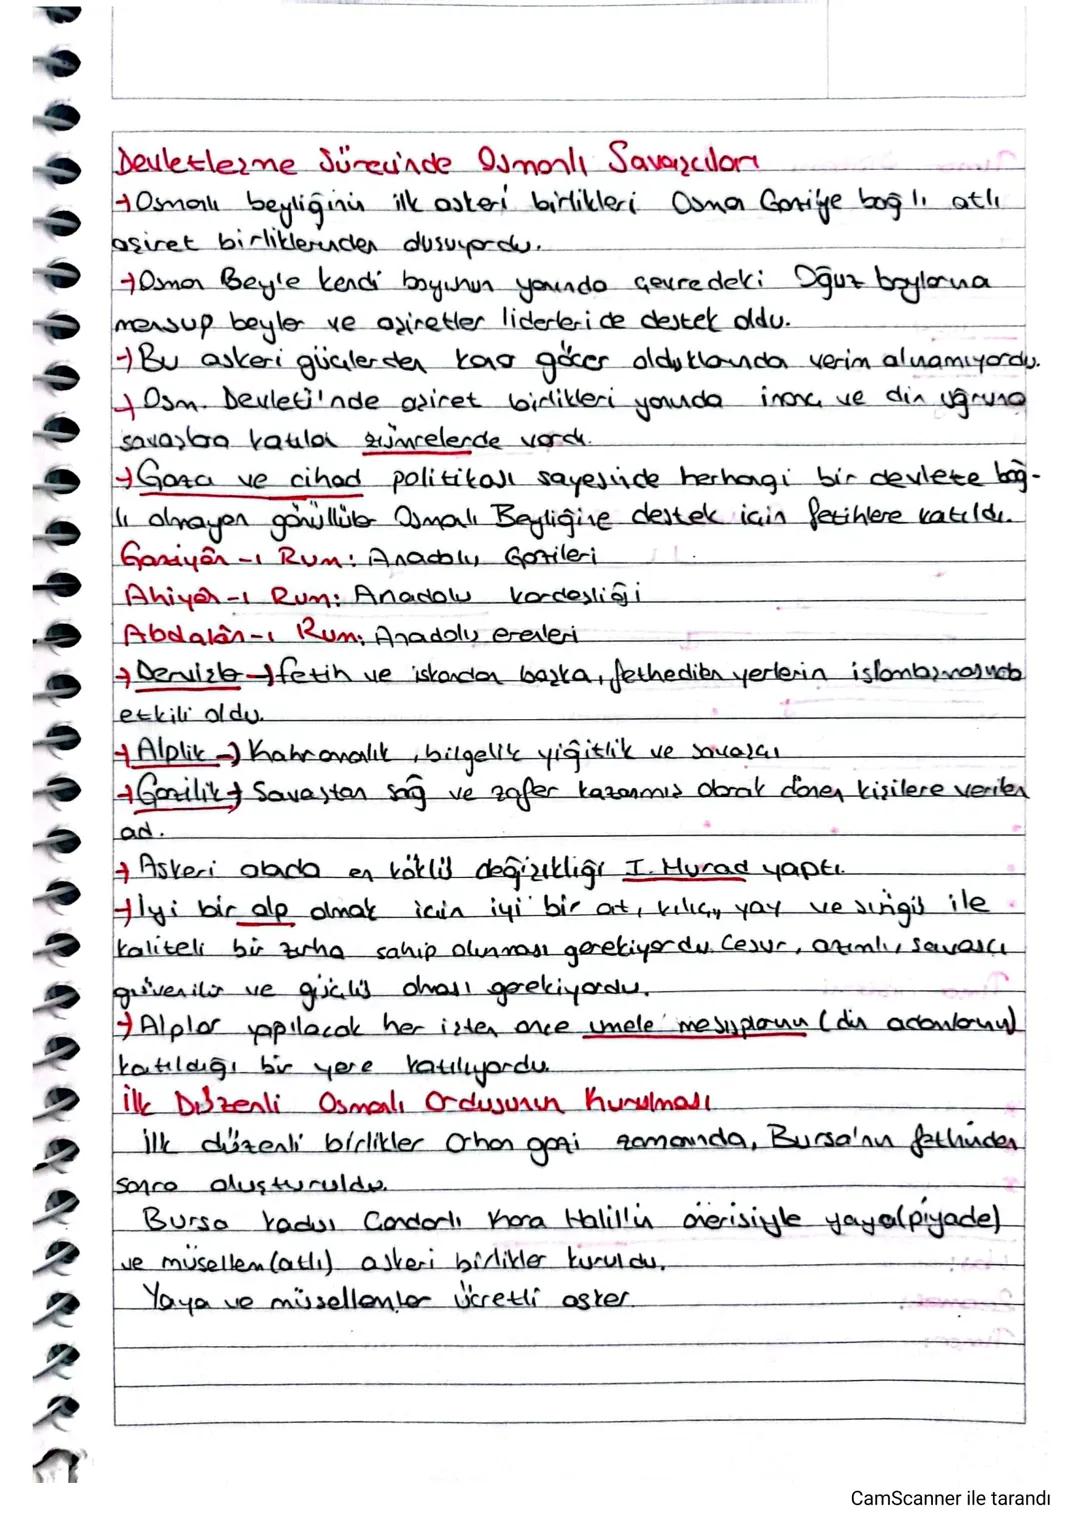 Devletleşme Sürecinde Osmanlı Savaşçıları
→Osmalı beyliğinin ilk askeri birlikleri Osma Gazi'ye bağlı atlı
aşiret birliklerinden oluşuyordu.
→Osman Beyle kendi boyunun yanında çevredeki Oğuz boylarına
mensup beyler ve aşiretler liderleri de destek oldu.
→Bu askeri güçlerden konar göçer olduklarında verim alınamıyordu.
→Osm. Devleti'nde aşiret birlikleri yanında inanç ve din uğruna
savaşlara katılan zümrelerde vardı.
→Gaza ve cihad politikası sayesinde herhangi bir devlete bağ-
lı olmayan gönüllüler Osmalı Beyliğine destek için fetihlere katıldı.
Gaziyân-ı Rum: Anadolu Gazileri
Ahiyân-ı Rum: Anadolu kardeşliği
Abdalân-ı Rum: Anadolu erenleri
→Dervişler→fetih ve iskandan başka, fethedilen yerlerin islamlaşmasında
etkili oldu.
→Alplik→Kahramanlık, bilgelik yiğitlik ve savaşçı
→Gazilik→Savaştan sağ ve zafer kazanmış olarak dönen kişilere verilen
ad.
→Askeri alanda en köklü değişikliği I. Murad yaptı.
→İyi bir alp olmak için iyi bir at, kılıç, yay ve süngü ile
kaliteli bir zırha sahip olunması gerekiyordu. Cesur, azimli, savaşçı
güvenilir ve güçlü olması gerekiyordu.
→Alplar yapılacak her işten önce umele mesuplarının (din adamlarının)
katıldığı bir yere katılıyordu.
İlk Düzenli Osmanlı Ordusunun Kurulması
İlk düzenli birlikler Orhan gazi zamanında, Bursa'nın fethinden
sonra oluşturuldu.
Bursa kadısı Candarlı Kara Halil'in önerisiyle yaya(piyade)
ve müsellem(atlı) askeri birlikler kuruldu.
Yaya ve müsellemler ücretli asker.
CamScanner ile tarandı